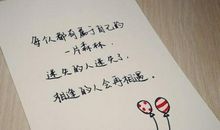 每个人都有属于自己的
一片森林.
迷失的人迷失了.
相逢的人会再相遇.